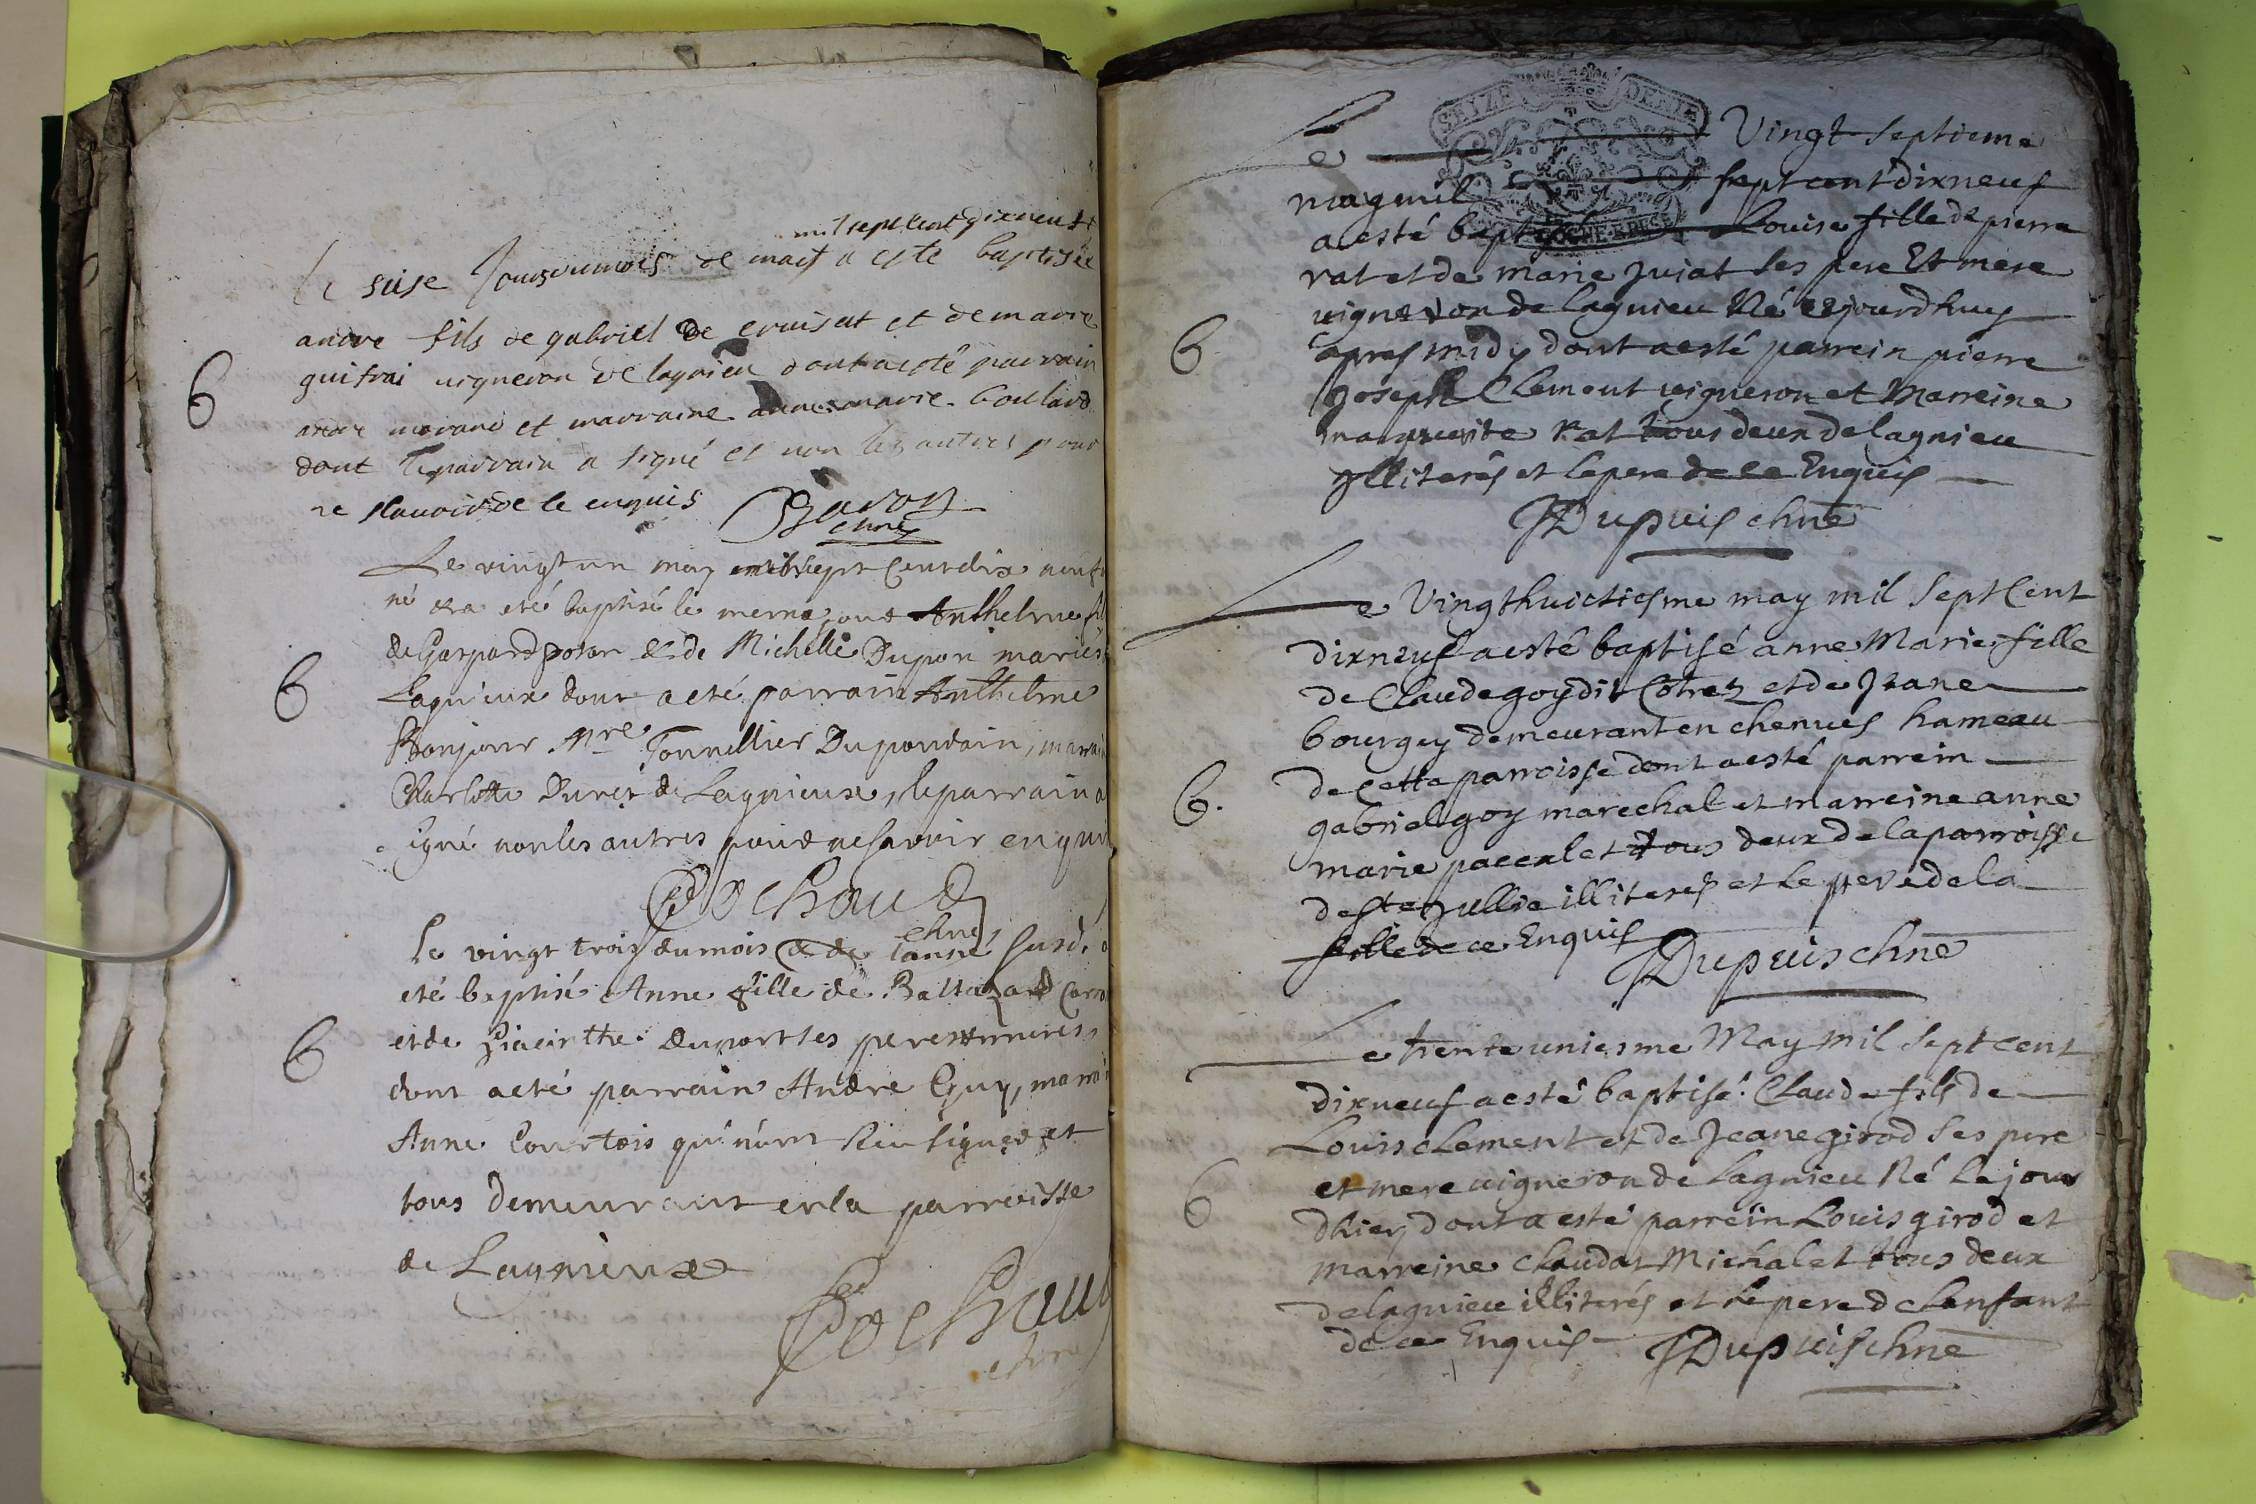 mil sept cent dixneuf
le saise Jour du mois de may a este baptisée
andre fils de gabriel de cruisat et de marie
guifrai vigneron de lagnieu dont a esté parrain
andre morand et marraine anne marie boulard
dont le parrain a signé et non les autres pour
ne scauoir de le enquis
chne
B
Le vingt un may mil sept Cent dix neuf
né & a eté baptisé le meme jour Anthelme fil
de Gaspard & de Michelle Dupon mariés
Lagnieux dont a eté parrain Anthelme
Bonjour Mre Tonnellier Dupondain, marrain
Charlotte Duret de Lagnieux, le parrain a
signé non les autres pour ne savoir enquis
B
Cochaud
chne
Le vingt trois du mois & de lanné susd. a
eté baptisé Anne fille de Baltazard
et de Hiacinthe Duport ses pere & meres
dont a eté parrain Andre Guy, marrai
Anne Courtois qui n'ont sceu signer et
tous demeurant en la parroisse
de Lagnieux
B
Cochaud
chne
SEIZE DENIE
Le Vingt septieme
may mil sept cent dixneuf
a esté baptisé Louise fille de pierre
rat et de marie Jujat ses pere Et mere
vigneron de lagnieu Né ce jourdhuy
apres midy dont a esté parrein pierre
Joseph Clement vigneron et Marreine
marguerite Rat tous deux de lagnieu
Illiterés et le pere de ce Enquis
B
JDupuis chne
Le Vingthuictiesme may mil Sept Cent
dixneuf a esté baptisé anne Marie fille
de Claude goy dit Cotrez et de Jeane
bourgey demeurant en chenues hameau
de Cette parroisse dont a esté parrein
gabriel goy marechal et marreine anne
marie pacealet tous deux de la parroisse
de Ste Jullie illiterés et Le pere de la
fille de ce Enquis
B.
JDupuis chne
Le trente uniesme May mil Sept Cent
dixneuf a esté baptisé Claude fils de
Louis clement et de Jeane girod Ses pere
et mere vigneron de Lagnieu Né Le jour
dhier dont a esté parrein Louis girod et
marreine Claudat Michalet tous deux
de lagnieu illiterés et le pere de lenfant
de ce Enquis
B
JDupuis chne